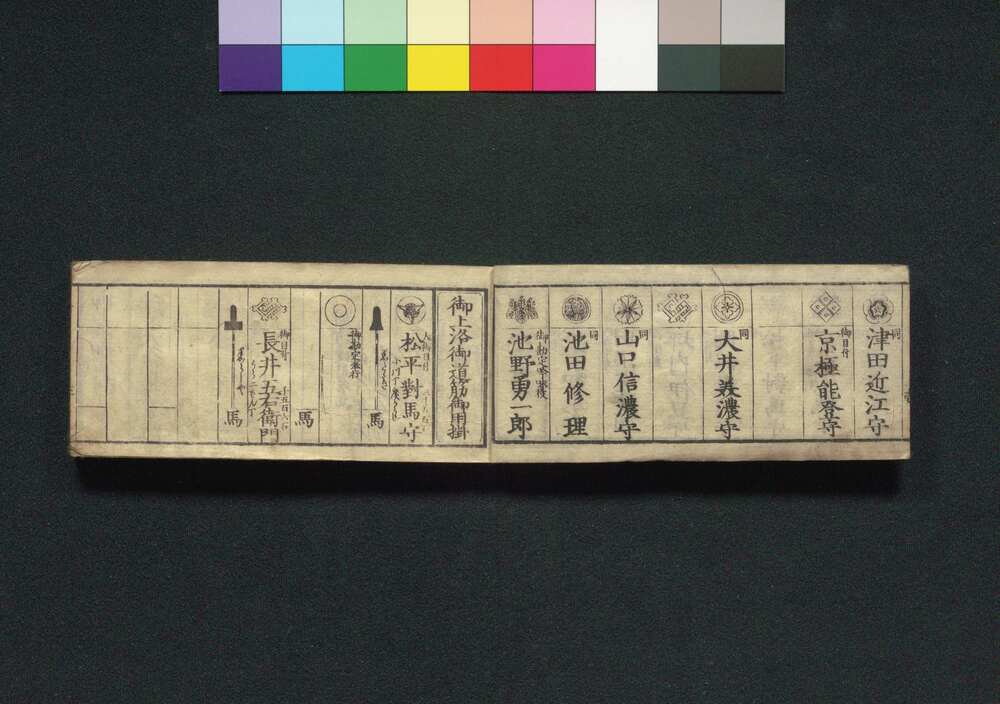 同
津田近江守
御目付
京極能登守
同
大井美濃守
同
山口信濃守
同
池田修理
池野勇一郎
御上洛御道筋御用掛
大御目付
松平對馬守
馬
御勘定奉行
馬
御目付
長井五右衛門
馬